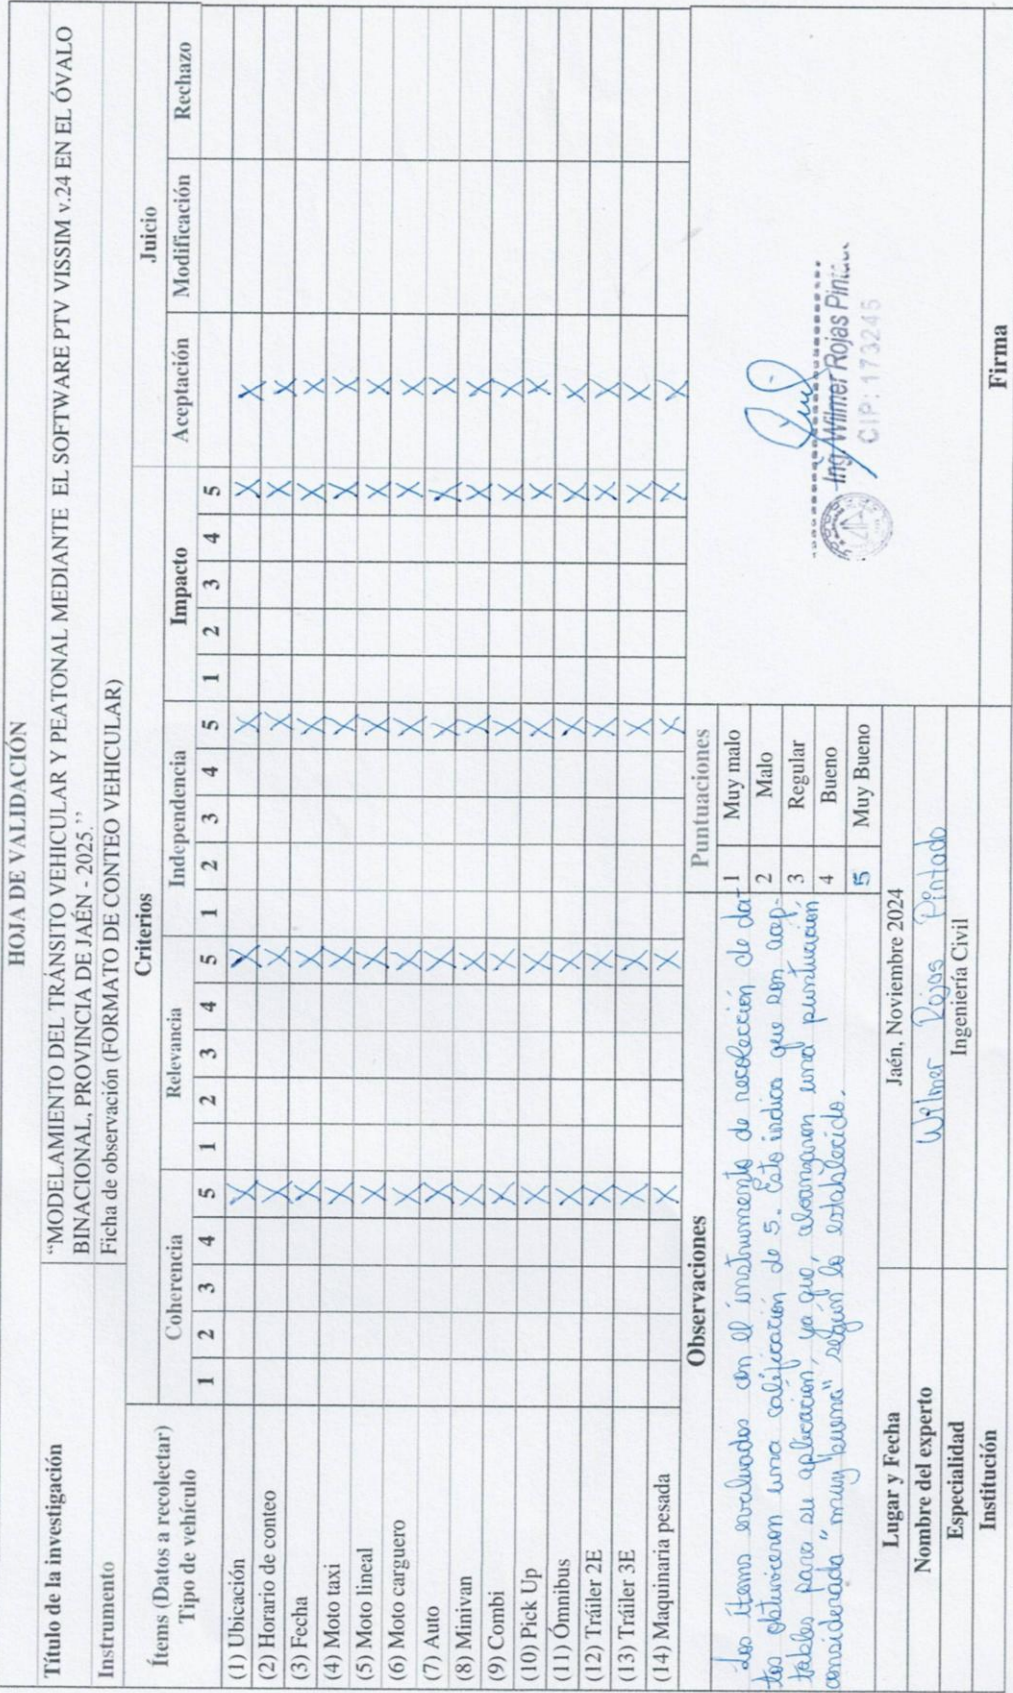 HOJA DE VALIDACIÓN
Título de la investigación
“MODELAMIENTO DEL TRÁNSITO VEHICULAR Y PEATONAL MEDIANTE EL SOFTWARE PTV VISSIM v.24 EN EL ÓVALO
BINACIONAL, PROVINCIA DE JAÉN - 2025.”
Instrumento Ficha de observación (FORMATO DE CONTEO VEHICULAR)
Ítems (Datos a recolectar)
Tipo de vehículo
Criterios Juicio
Coherencia Relevancia Independencia Impacto Aceptación Modificación Rechazo
1 2 3 4 5 1 2 3 4 5 1 2 3 4 5 1 2 3 4 5
(1) Ubicación X X X X X
(2) Horario de conteo X X X X X
(3) Fecha X X X X X
(4) Moto taxi X X X X X
(5) Moto lineal X X X X X
(6) Moto carguero X X X X X
(7) Auto X X X X X
(8) Minivan X X X X X
(9) Combi X X X X X
(10) Pick Up X X X X X
(11) Ómnibus X X X X X
(12) Tráiler 2E X X X X X
(13) Tráiler 3E X X X X X
(14) Maquinaria pesada X X X X X
Observaciones
Los ítems evaluados en el instrumento de recolección de da-
tos obtuvieron una calificación de 5. Esto indica que son acep-
tables para su aplicación, ya que, alcanzaron una puntuación
considerada "muy buena" según lo establecido.
Puntuaciones
1 Muy malo
2 Malo
3 Regular
4 Bueno
5 Muy Bueno
Lugar y Fecha Jaén, Noviembre 2024
Nombre del experto Wilmer Rojas Pintado
Especialidad Ingeniería Civil
Institución
Ing. Wilmer Rojas Pintado
CIP: 173245
Firma